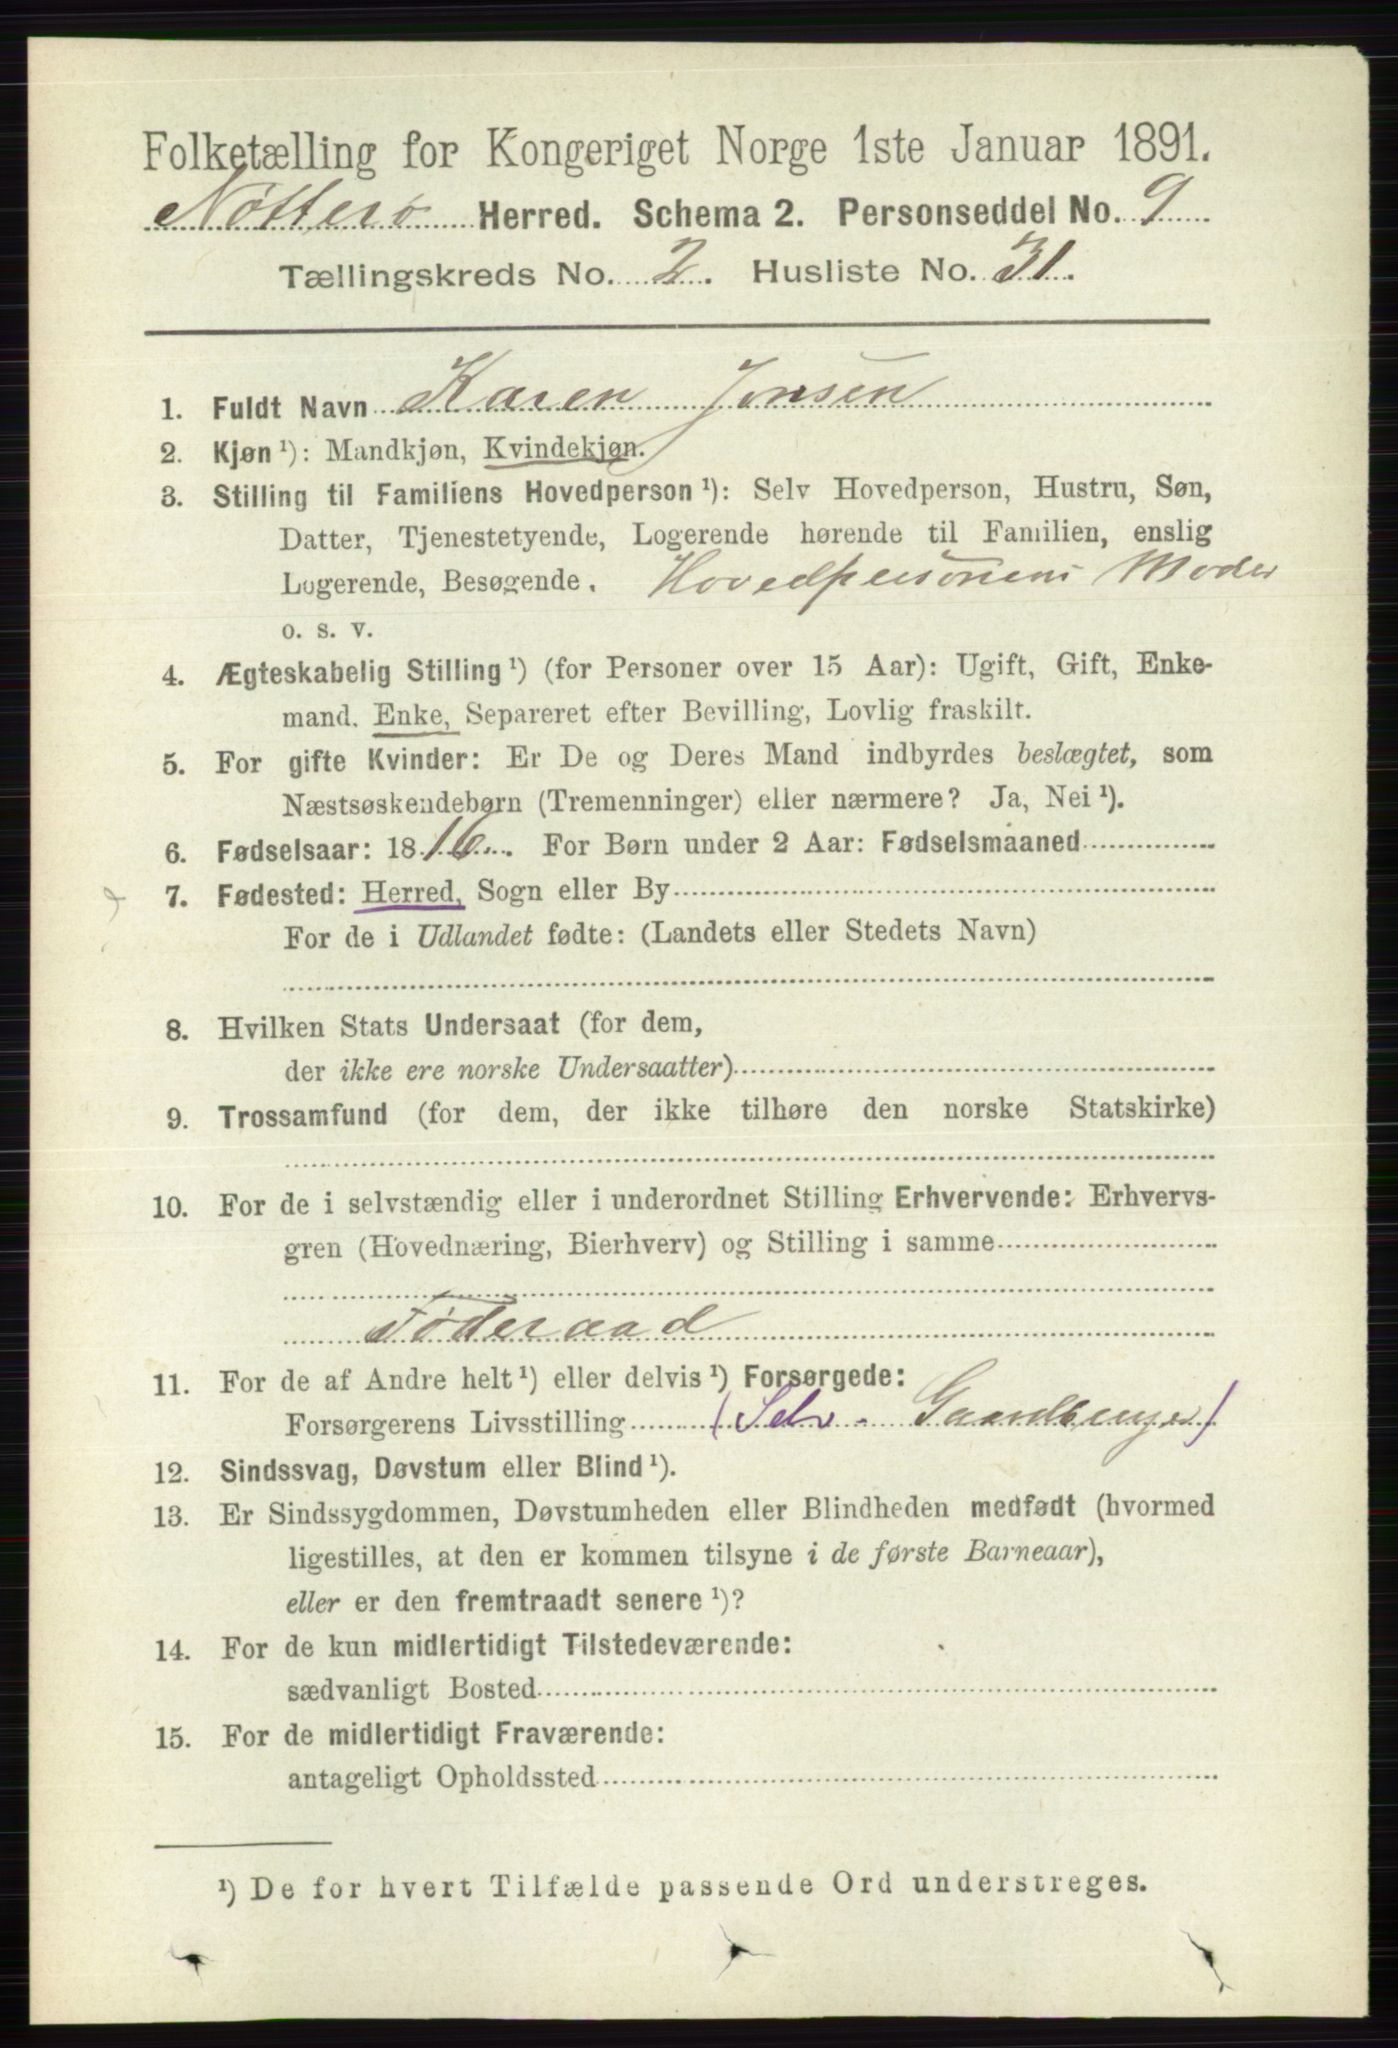 Folketælling for Kongeriget Norge 1ste Januar 1891.
Nøtterø Herred. Schema 2. Personseddel No. 9
Tællingskreds No. 2. Husliste No. 31.
1. Fuldt Navn Karen Jonsen
2. Kjøn ¹): Mandkjøn, Kvindekjøn.
3. Stilling til Familiens Hovedperson ¹): Selv Hovedperson, Hustru, Søn,
Datter, Tjenestetyende, Logerende hørende til Familien, enslig
Logerende, Besøgende. Hovedpersonens Moder
o. s. v.
4. Ægteskabelig Stilling ¹) (for Personer over 15 Aar): Ugift, Gift, Enke-
mand, Enke, Separeret efter Bevilling, Lovlig fraskilt.
5. For gifte Kvinder: Er De og Deres Mand indbyrdes beslægtet, som
Næstsøskendebørn (Tremenninger) eller nærmere? Ja, Nei ¹).
6. Fødselsaar: 1816. For Børn under 2 Aar: Fødselsmaaned
7. Fødested: Herred, Sogn eller By
For de i Udlandet fødte: (Landets eller Stedets Navn)
8. Hvilken Stats Undersaat (for dem,
der ikke ere norske Undersaatter)
9. Trossamfund (for dem, der ikke tilhøre den norske Statskirke)
10. For de i selvstændig eller i underordnet Stilling Erhvervende: Erhvervs-
gren (Hovednæring, Bierhverv) og Stilling i samme
Føderaad
11. For de af Andre helt ¹) eller delvis ¹) Forsørgede:
Forsørgerens Livsstilling (Selv.
12. Sindssvag, Døvstum eller Blind ¹).
13. Er Sindssygdommen, Døvstumheden eller Blindheden medfødt (hvormed
ligestilles, at den er kommen tilsyne i de første Barneaar),
eller er den fremtraadt senere ¹)?
14. For de kun midlertidigt Tilstedeværende:
sædvanligt Bosted
15. For de midlertidigt Fraværende:
antageligt Opholdssted
¹) De for hvert Tilfælde passende Ord understreges.